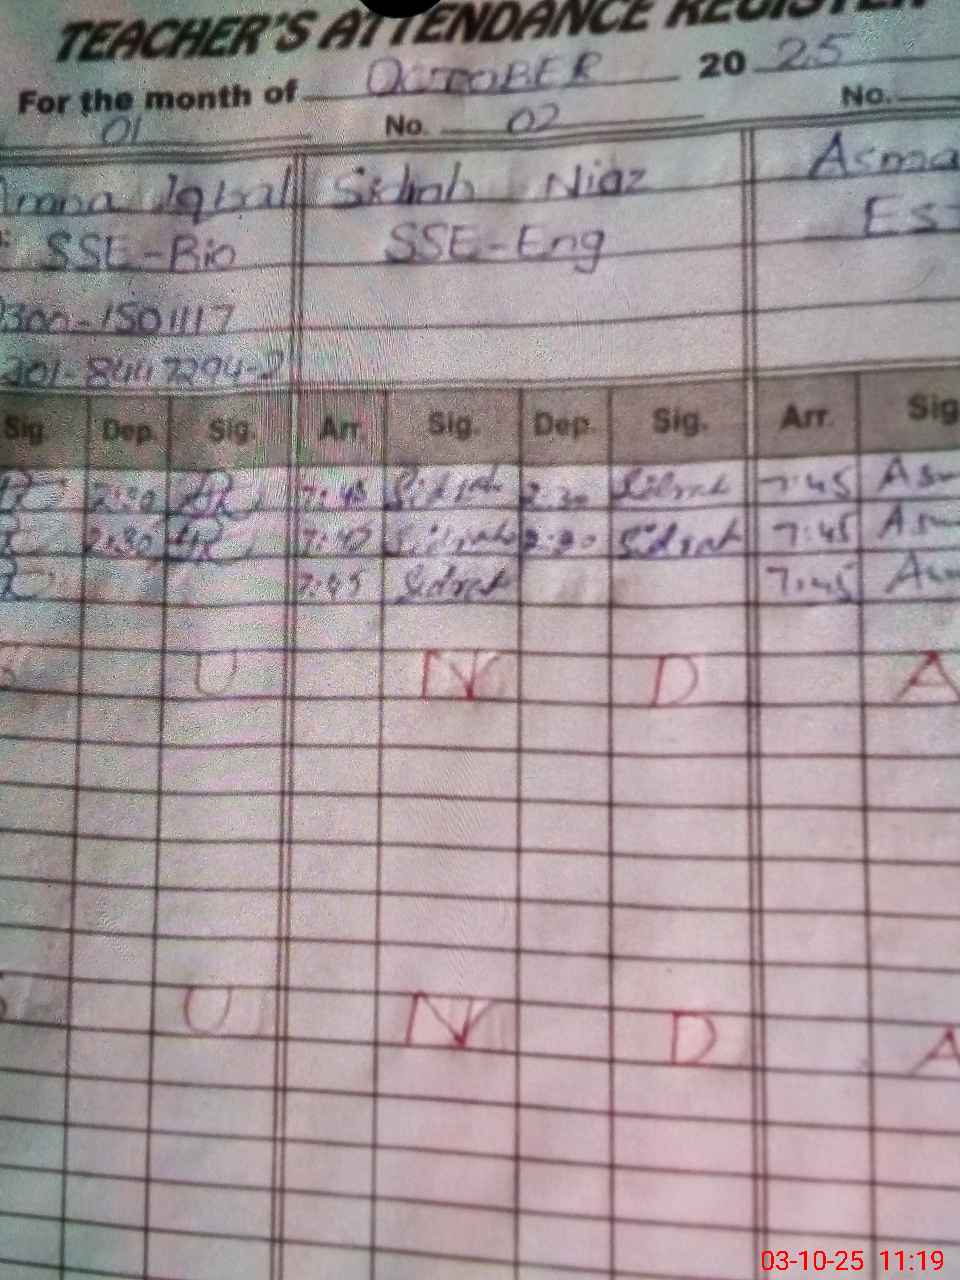 TEACHER'S ATTENDANCE REGISTER
For the month of OCTOBER 20 25
01 No. 02 No.
Iqbal Sidrah Niaz Asma
SSE-Bio SSE-Eng
Sig. Dep. Sig. Arr. Sig. Dep. Sig. Arr. Sig
2:30 7:45 Sidrah 2:30 Sidrah 7:45 Asm
2:30 Sidrah 2:30 Sidrah 7:45 Asm
7:45 Sidrah 7:45 Asm
U N D A
U N D A
03-10-25 11:19